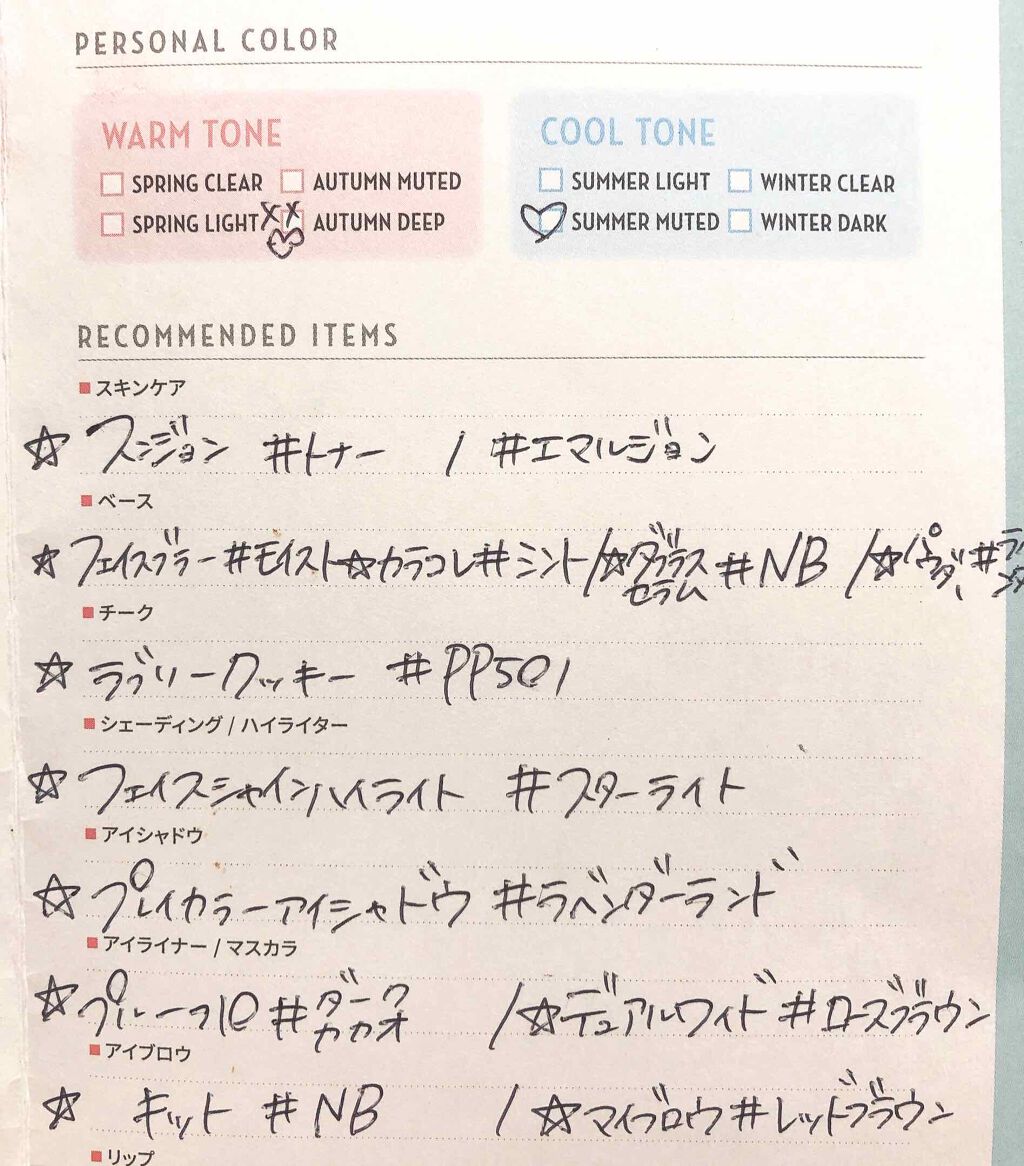 PERSONAL COLOR
WARM TONE
SPRING CLEAR AUTUMN MUTED
SPRING LIGHT AUTUMN DEEP
COOL TONE
SUMMER LIGHT WINTER CLEAR
SUMMER MUTED WINTER DARK
RECOMMENDED ITEMS
スキンケア
☆スンジョン #トナー / #エマルジョン
ベース
☆フェイスブラー#モイスト☆カラコレ#ミント/☆ダブラスセラム#NB /☆パウダー#
チーク
☆ラブリークッキー #PP501
シェーディング / ハイライター
☆フェイスシャインハイライト #スターライト
アイシャドウ
☆プレイカラーアイシャドウ #ラベンダーランド
アイライナー / マスカラ
☆プルーフ10#ダークカカオ /☆デュアルワイド#ローズブラウン
アイブロウ
☆キット #NB / ☆マイブロウ#レッドブラウン
リップ